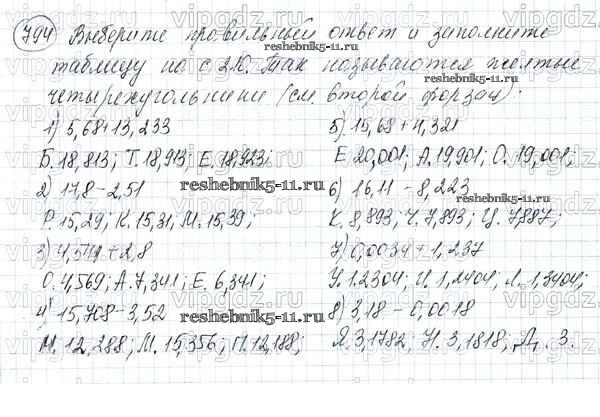 794 Выберите правильный ответ и заполните
таблицу на с 210. Так называются желтые
четырехугольники (см. второй форзац).
1) 5,68+13,233
Б. 18,813; Т. 18,913; Е. 18,923;
2) 17,8-2,51
Р. 15,29; К. 15,31; М. 15,39;
3) 4,541+2,8
О. 4,569; А. 7,341; Е. 6,341;
4) 15,708-3,52
М. 12,288; М. 15,356; П. 12,188;
5) 15,68+4,321
Е 20,001; А. 19,901; О. 19,001;
6) 16,11-8,223
К. 8,893; Ч. 7,893; Ц. 7,887;
7) 0,0034+1,237
У. 1.2304; И. 1,2404; Л. 1,3404;
8) 3,18-0,0018
Я. 3,1782; Н. 3,1818; Д. 3.
reshebnik5-11.ru
reshebnik5-11.ru
reshebnik5-11.ru
reshebnik5-11.ru
reshebnik5-11.ru
vipgdz.com